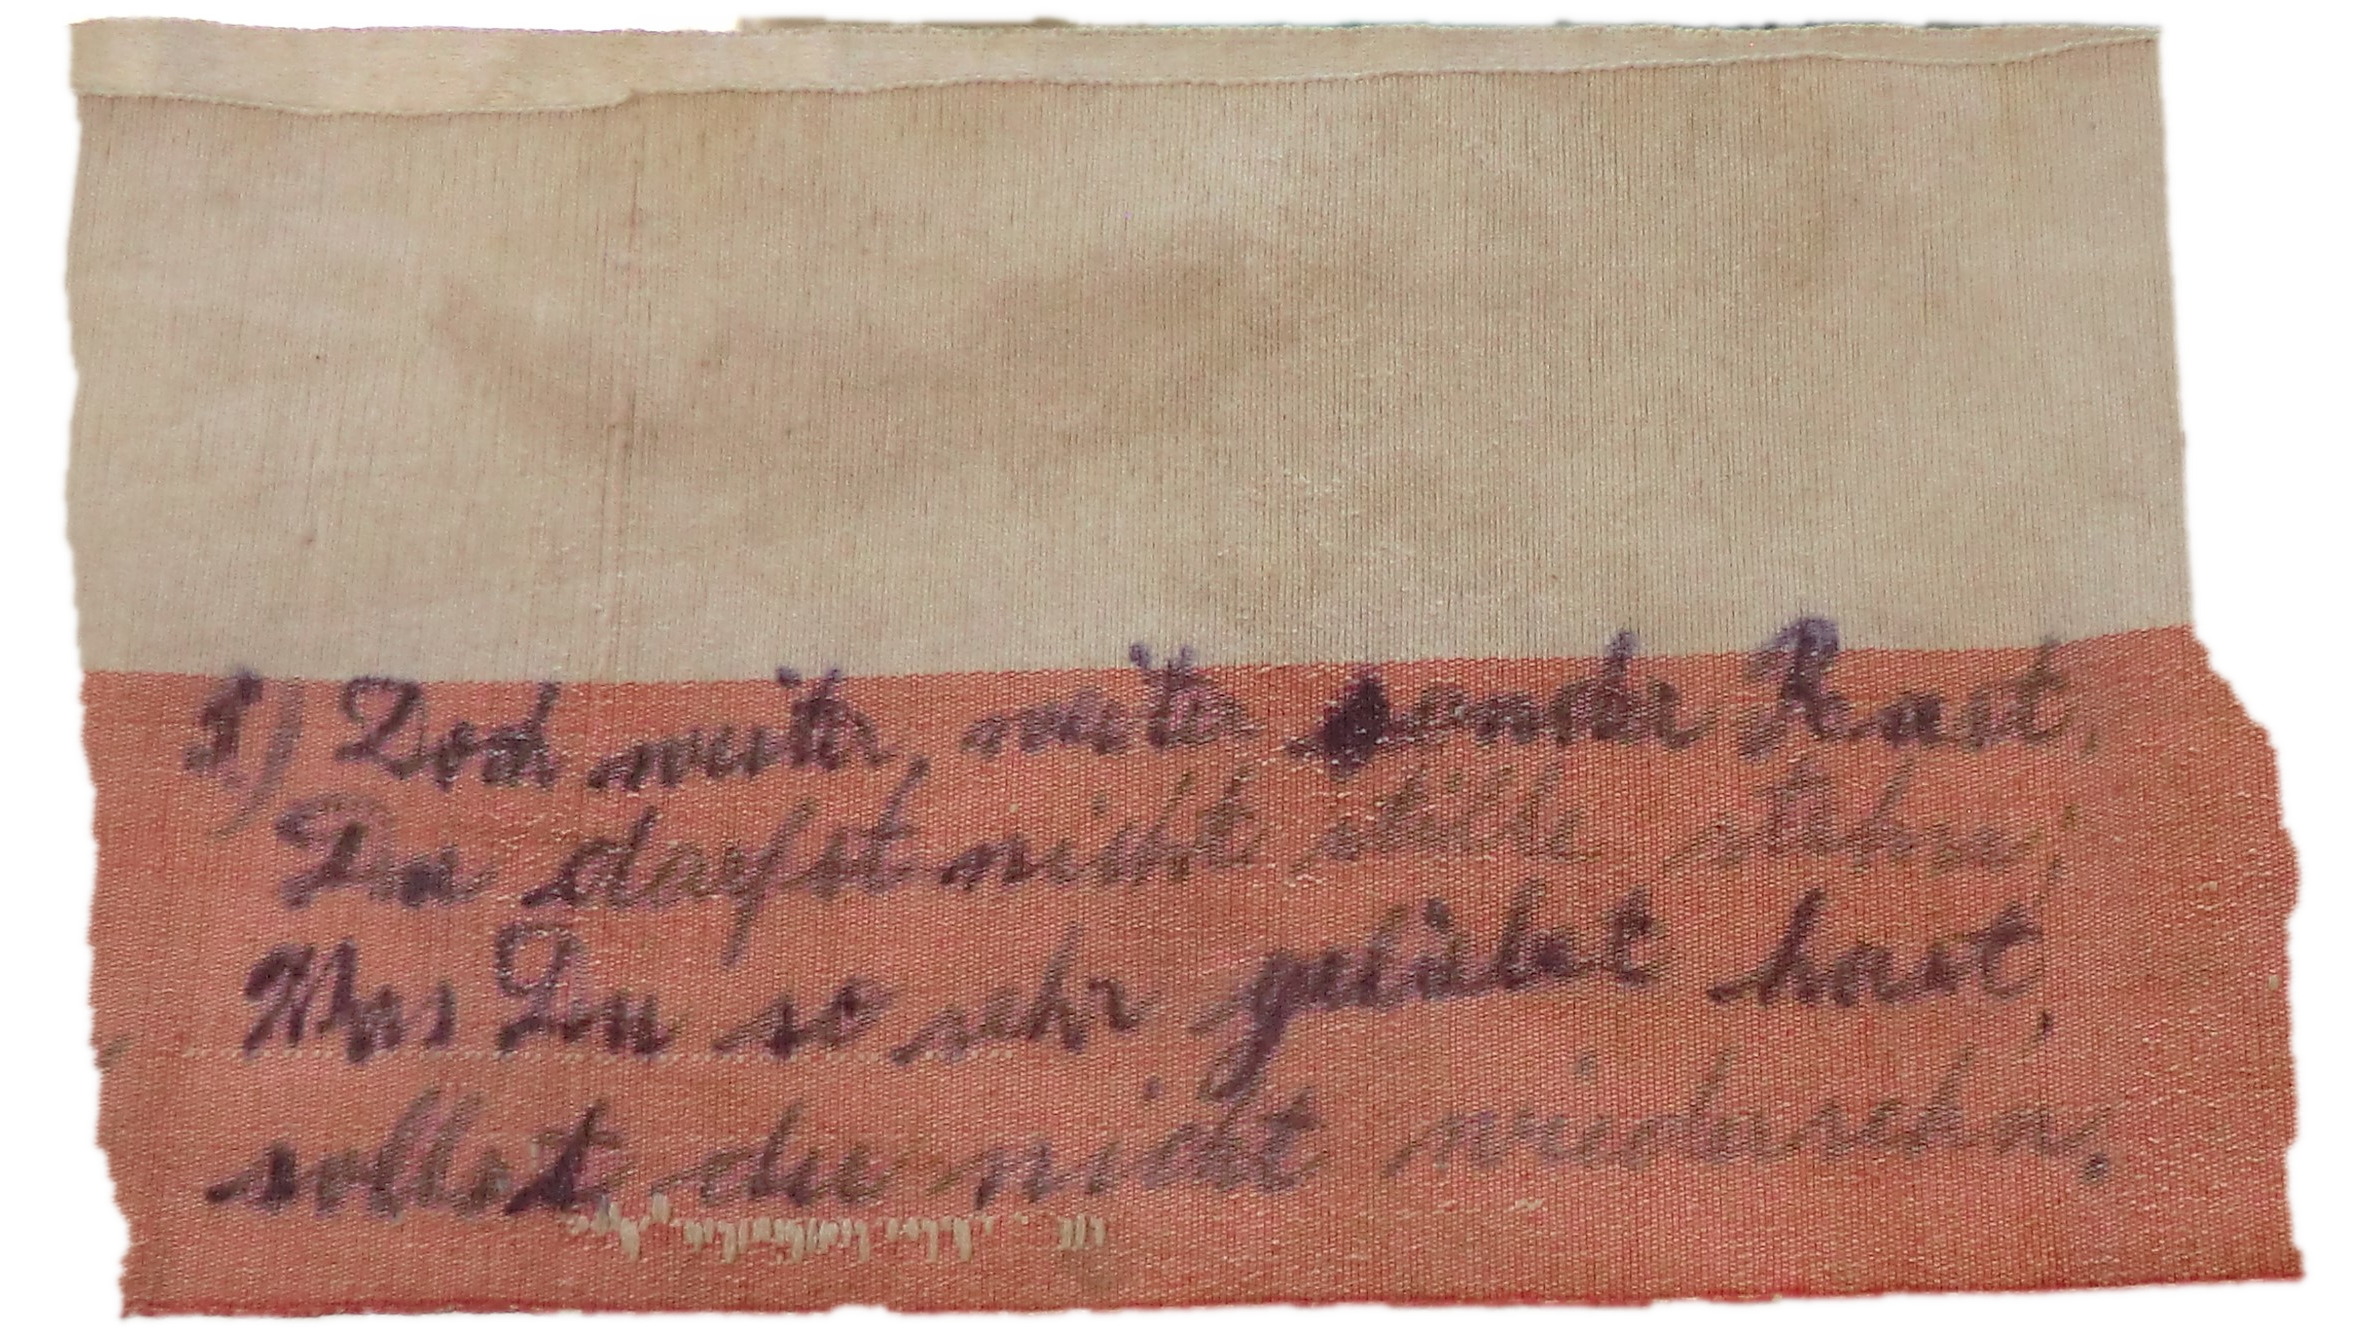 8.) Doch weiter, weiter sonder Rast,
Du darfst nicht stille stehn,
Was Du so sehr geliebet hast,
sollst du nicht wiedersehn,